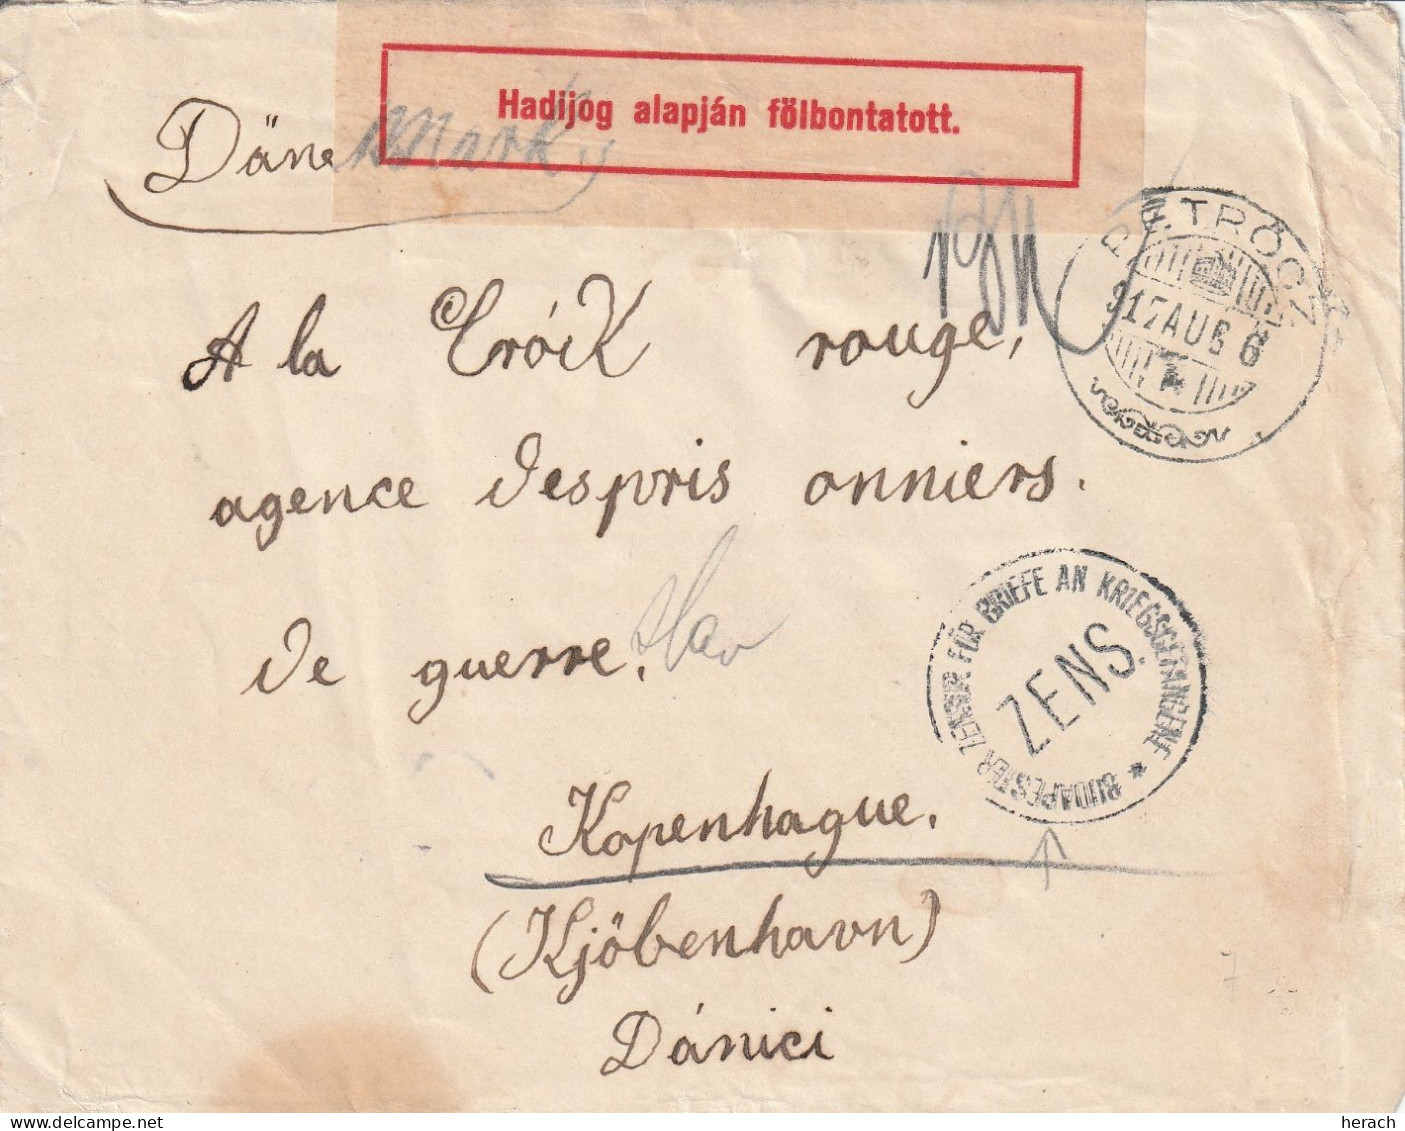 Hadijog alapján fölbontatott.
Dänemark
PETRŐCZ
917 AUG 6
A la Cróix rouge,
agence des pris onniers.
de guerre. slav
BUDAPESTER ZENSUR FÜR BRIEFE AN KRIEGSGEFANGENE *
ZENS.
Kopenhague.
(Kjöbenhavn)
Dánici
7
herach